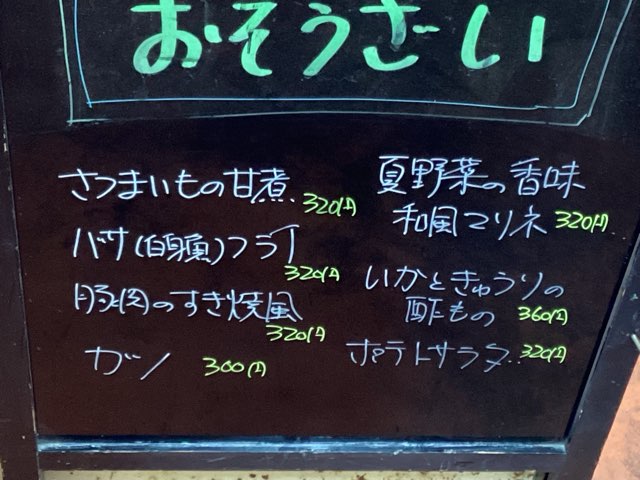 おそうざい
さつまいもの甘煮
320円
バサ(白身魚)フライ
320円
豚肉のすき焼風
320円
ガツ 300円
夏野菜の香味
和風マリネ 320円
いかときゅうりの
酢もの 360円
ポテトサラダ 320円